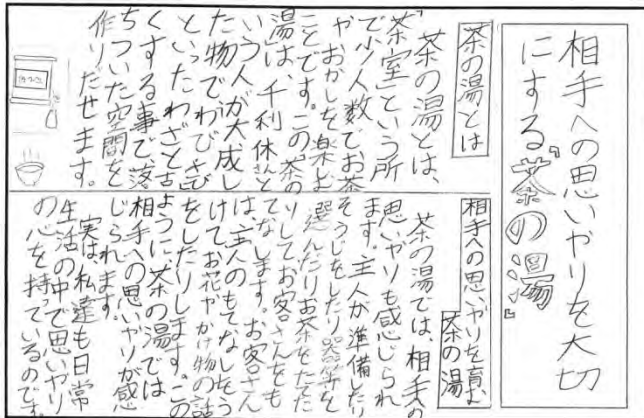 相手への思いやりを大切
にする『茶の湯』
茶の湯とは
茶の湯とは、
「茶室」という所
で少人数でお茶
やおかしを楽しむ
ことです。この「茶の
湯」は、千利休さんと
いう人が大成し
た物でわびさび
といったわざと古
くする事で、落
ちついた空間を
作りだせます。
相手への思いやりを育む
茶の湯
茶の湯では、相手への
思いやりも感じられ
ます。主人が準備したり
そうじをしたり器等を
選んだりお茶をたてた
りしてお客さんをも
てなします。お客さん
は、主人のもてなしをう
けてお花やかけ物の話
をしたりします。この
ように、茶の湯では
相手への思いやりが感
じられます。
実は、私達も日常
生活の中で思いやり
の心を持っているのです。